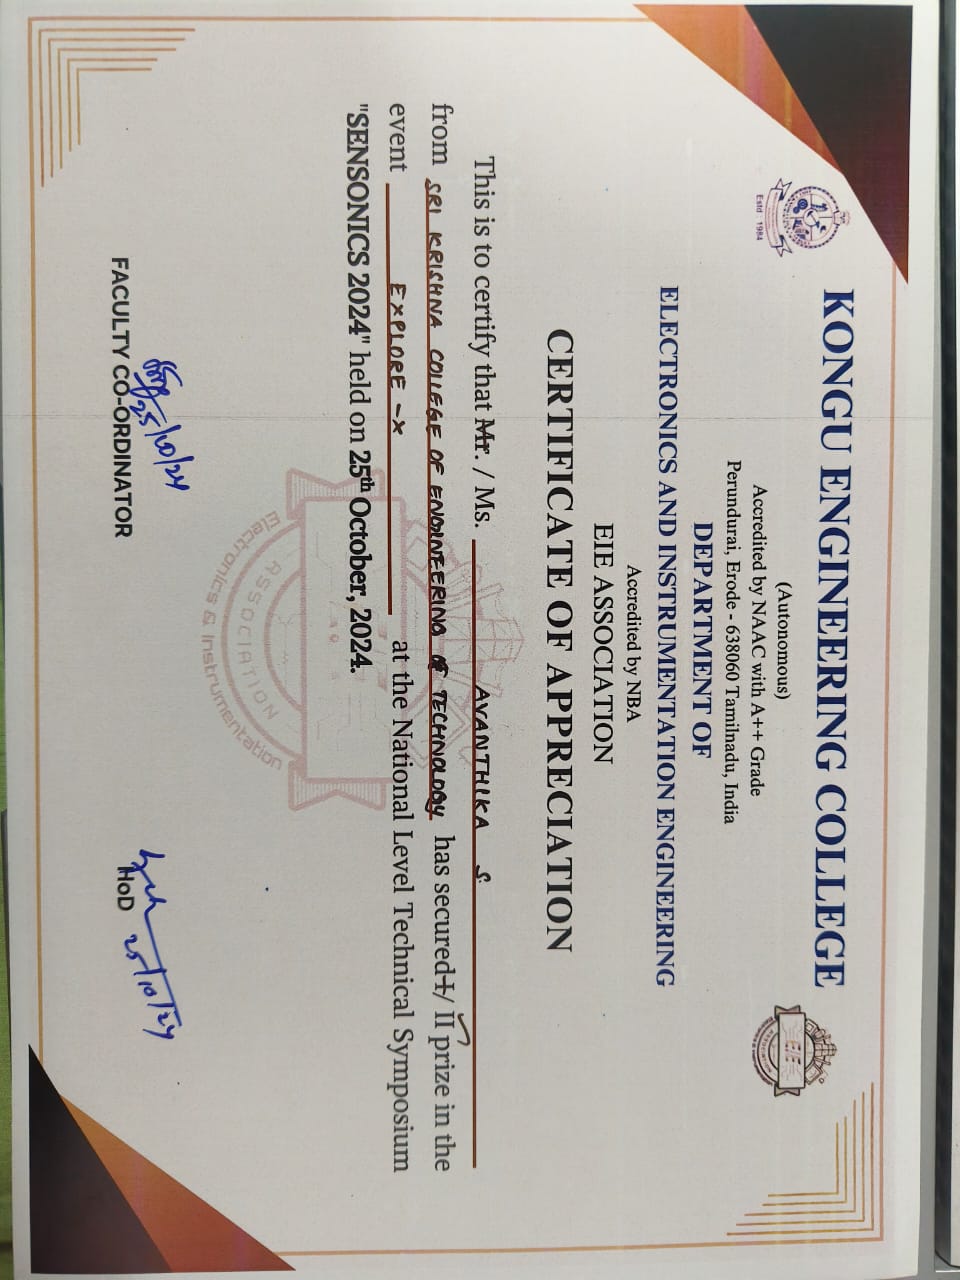 KONGU ENGINEERING COLLEGE
(Autonomous)
Accredited by NAAC with A++ Grade
Perundurai, Erode - 638060 Tamilnadu, India
Estd : 1984
DEPARTMENT OF
ELECTRONICS AND INSTRUMENTATION ENGINEERING
Accredited by NBA
EIE ASSOCIATION
EIE
CERTIFICATE OF APPRECIATION
This is to certify that Mr. / Ms. AVANTHIKA S.
from SRI KRISHNA COLLEGE OF ENGINEERING OF TECHNOLOGY has secured I / II prize in the
event EXPLORE -X at the National Level Technical Symposium
"SENSONICS 2024" held on 25th October, 2024.
ASSOCIATION
Electronics & Instrumentation
25/10/24
25/10/24
FACULTY CO-ORDINATOR
HoD